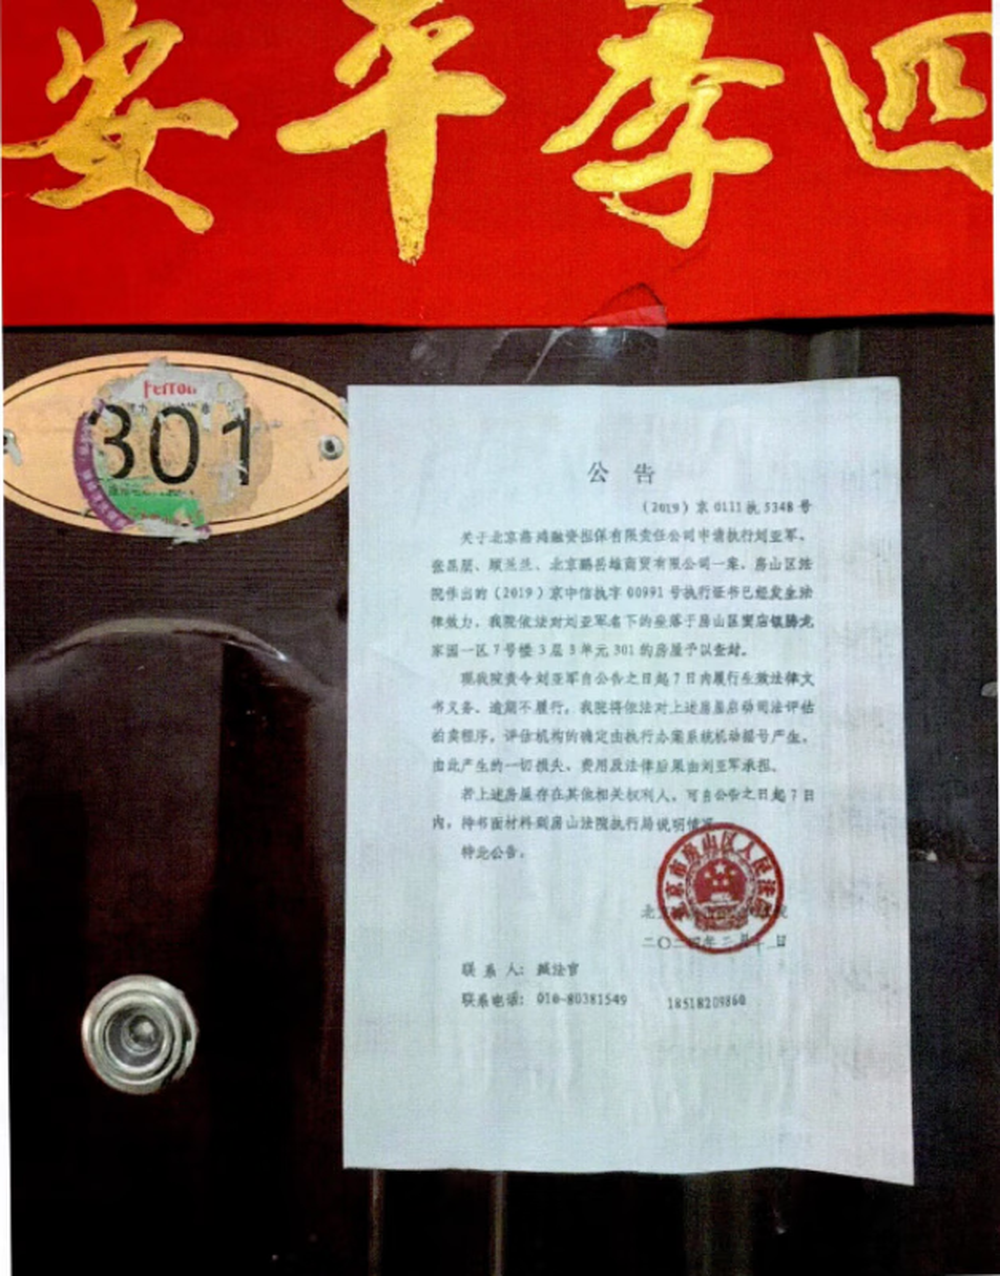 安平季四
Ferrou
301
公 告
（2019）京 0111 执 5348 号
关于北京燕鸿融资担保有限责任公司申请执行刘亚军、
北京 商贸有限公司一案，房山区法
院作出的（2019）京中信执字 00991 号执行证书已经发生法
律效力，我院依法对刘亚军名下的座落于房山区窦店镇腾龙
家园一区 7 号楼 3 层 3 单元 301 的房屋予以查封。
现我院责令刘亚军自公告之日起 7 日内履行生效法律文
书义务，逾期不履行，我院将依法对上述房屋启动司法评估
拍卖程序，评估机构的确定由执行办案系统机动摇号产生，
由此产生的一切损失、费用及法律后果由刘亚军承担。
若上述房屋存在其他相关权利人，可自公告之日起 7 日
内，持书面材料到房山法院执行局说明情况。
特此公告。
北京市房山区人民法院
联 系 人： 法官
联系电话： 010-80381549 18518209860